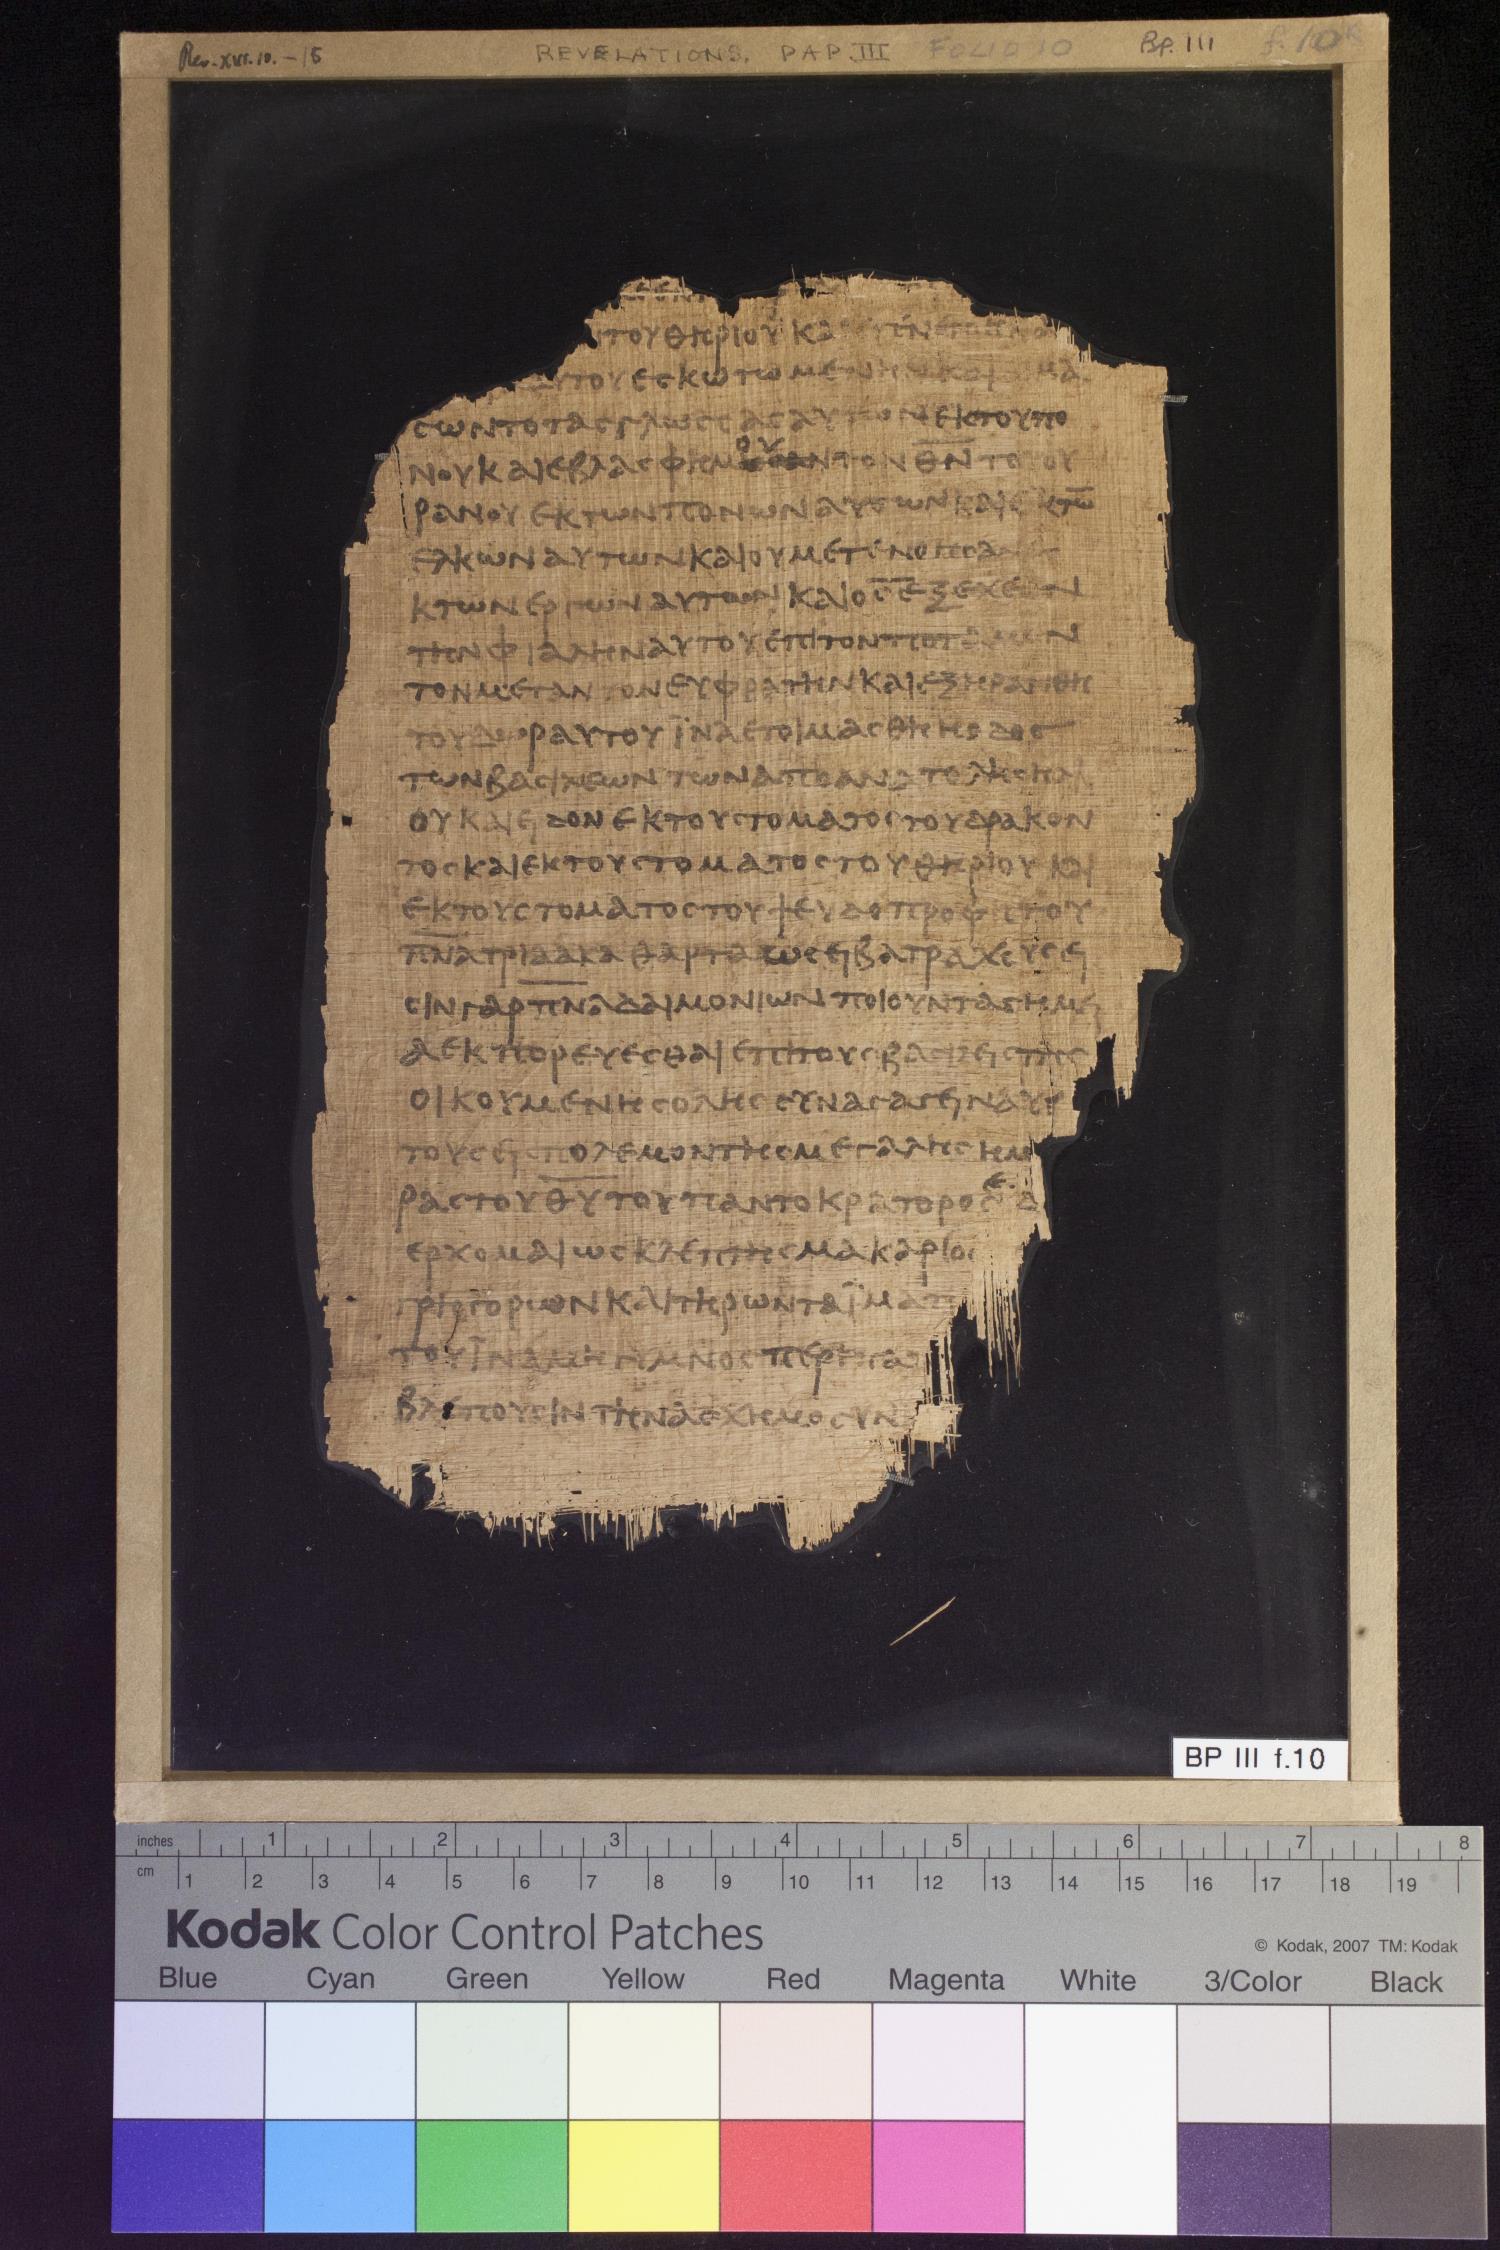 Rev. XVI. 10. – 15 REVELATIONS. PAP. III FOLIO 10 BP. III f. 10
ΤΟΥΘΗΡΙΟΥ ΚΑ
ΥΤΟΥΕΣΚΩΤΩΜΕΝΗ ΚΑΙ ΜΑ
ϹΩΝΤΟΤΑϹΓΛΩϹϹΑϹΑΥΤΩΝΕΚΤΟΥΠΟ
ΝΟΥΚΑΙΕΒΛΑϹΦΗΜΟΥΝΤΟΝΘΝΤΟΥΟΥ
ΡΑΝΟΥΕΚΤΩΝΠΟΝΩΝΑΥΤΩΝΚΑΙΕΚΤΩ̅
ΕΛΚΩΝΑΥΤΩΝΚΑΙΟΥΜΕΤΕΝΟΗϹΑΝ
ΚΤΩΝΕΡΓΩΝΑΥΤΩΝΚΑΙΟϚ̅ΕΞΕΧΕΕΝ
ΤΗΝΦΙΑΛΗΝΑΥΤΟΥΕΠΙΤΟΝΠΟΤΑΜΟΝ
ΤΟΝΜΕΓΑΝΤΟΝΕΥΦΡΑΤΗΝΚΑΙΕΞΗΡΑΝΘΗ
ΤΟΥΔΩΡΑΥΤΟΥΪΝΑΕΤΟΙΜΑϹΘΗΗΟΔΟϹ
ΤΩΝΒΑϹΙΛΕΩΝΤΩΝΑΠΟΑΝΑΤΟΛΗϹΗΛΙ
ΟΥΚΑΙΕΙΔΟΝΕΚΤΟΥϹΤΟΜΑΤΟϹΤΟΥΔΡΑΚΟΝ
ΤΟϹΚΑΙΕΚΤΟΥϹΤΟΜΑΤΟϹΤΟΥΘΗΡΙΟΥΚΑΙ
ΕΚΤΟΥϹΤΟΜΑΤΟϹΤΟΥΨΕΥΔΟΠΡΟΦΗΤΟΥ
Π̅Ν̅Α̅ΤΡΙΑΑΚΑΘΑΡΤΑΩϹΕΙΒΑΤΡΑΧΟΥϹΕΙ
ϹΙΝΓΑΡΠ̅Ν̅Α̅ΔΑΙΜΟΝΙΩΝΠΟΙΟΥΝΤΑϹΗΜΕΙ
ΑΕΚΠΟΡΕΥΕϹΘΑΙΕΠΙΤΟΥϹΒΑϹΙΛΕΙϹΤΗϹ
ΟΙΚΟΥΜΕΝΗϹΟΛΗϹϹΥΝΑΓΑΓΕΙΝΑΥ
ΤΟΥϹΕΙϹΠΟΛΕΜΟΝΤΗϹΜΕΓΑΛΗϹΗΜΕ
ΡΑϹΤΟΥΘ̅Υ̅ΤΟΥΠΑΝΤΟΚΡΑΤΟΡΟϹ
ΕΡΧΟΜΑΙΩϹΚΛΕΠΤΗϹΜΑΚΑΡΙΟϹ
ΓΡΗΓΟΡΩΝΚΑΙΤΗΡΩΝΤΑΪΜΑΤ
ΤΟΥΪΝΑΜΗΓΥΜΝΟϹΠΕΡΙΠΑ
ΒΛΕΠΟΥϹΙΝΤΗΝΑϹΧΗΜΟϹΥΝ
BP III f.10
inches 1 2 3 4 5 6 7 8
cm 1 2 3 4 5 6 7 8 9 10 11 12 13 14 15 16 17 18 19
Kodak Color Control Patches
© Kodak, 2007 TM: Kodak
Blue Cyan Green Yellow Red Magenta White 3/Color Black